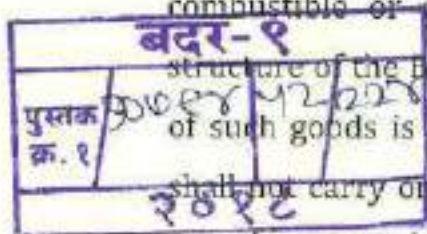 combustible or
बदर-९
structure of the
पुस्तक
of such goods is
क्र. १
shall not carry
२०१८